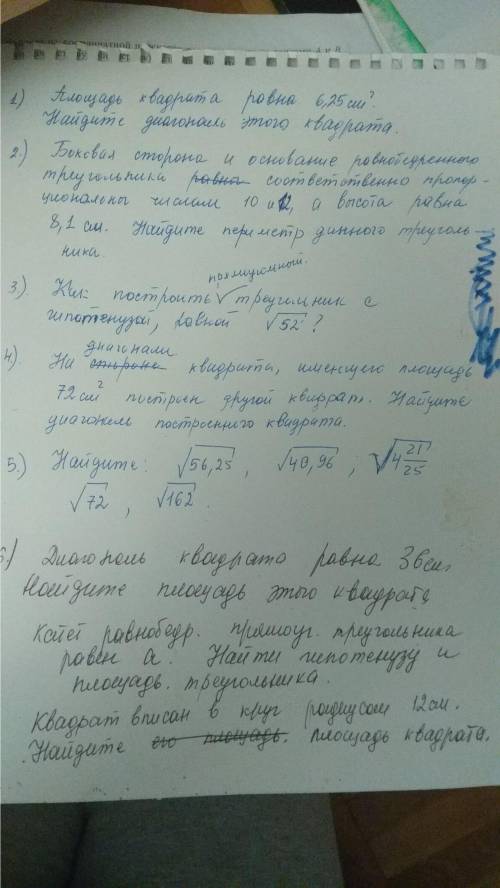 1) Площадь квадрата равна 6,25 см².
Найдите диагональ этого квадрата.
2.) Боковая сторона и основание равнобедренного
треугольника равна соответственно пропор-
циональны числам 10 и 12, а высота равна
8,1 см. Найдите периметр данного треуголь-
ника.
прямоугольный.
3) Как построить √ треугольник с
гипотенузой, равной √52 ?
диагонали
4). На сторона квадрата, имеющего площадь
72 см² построен другой квадрат. Найдите
диагональ построенного квадрата.
5.) Найдите: √56,25 , √40,96 ; √4 21/25
√72 , √162 .
6) Диагональ квадрата равна 36 см,
Найдите площадь этого квадрата
Катет равнобедр. прямоуг. треугольника
равен a. Найти гипотенузу и
площадь. треугольника.
Квадрат вписан в круг радиусом 12 см.
Найдите его площадь. площадь квадрата.